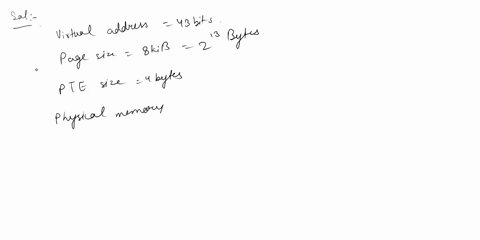 Sol:-
Virtual address = 43 bits.
Page size = 8kiB = 2^13 Bytes
PTE size = 4 bytes
Physical memory